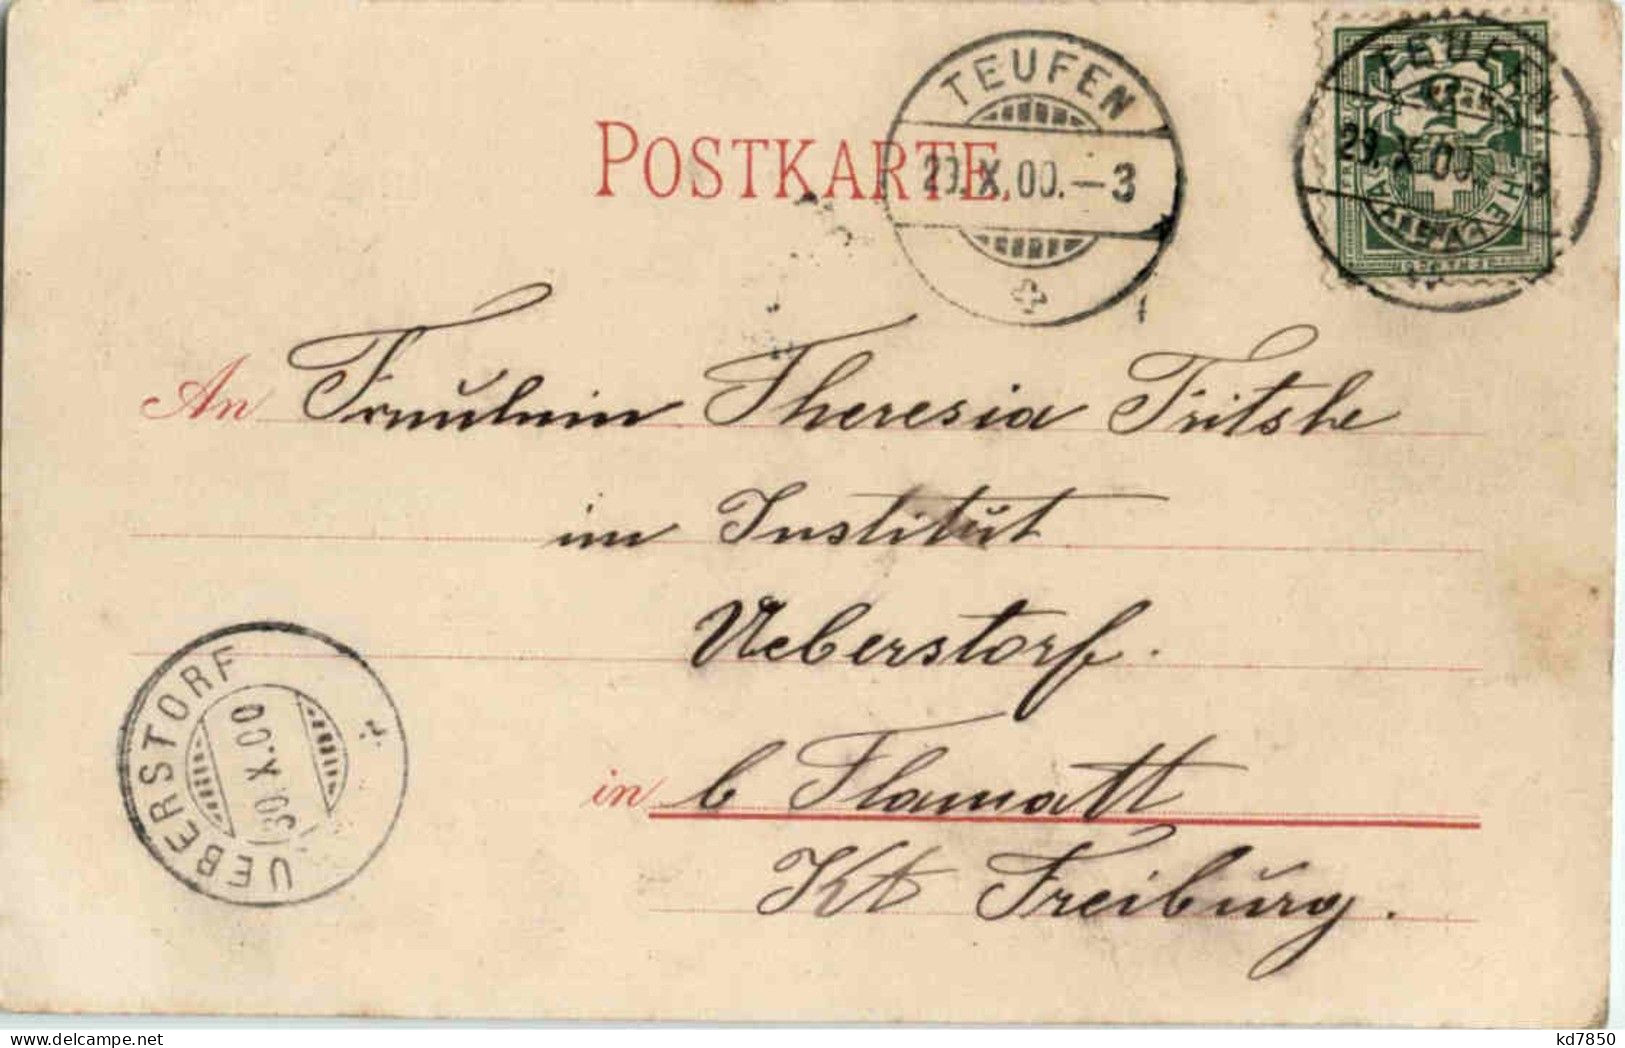 TEUFEN
29.X.00.-3
TEUFEN
29.X.00.-3
HELVETIA
POSTKARTE.
An Fräulein Theresia Fritshe
im Institut
Ueberstorf.
in b Flamatt
Kt Freiburg.
UEBERSTORF
30.X.00
kd7850